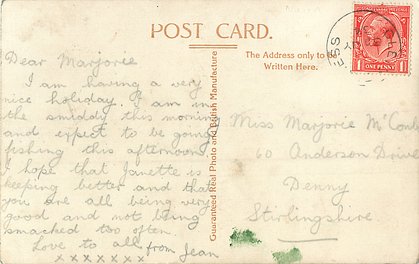 POST CARD.
The Address only to be
Written Here.
Guaranteed Real Photo and English Manufacture
ONE PENNY
Dear Marjorie
I am having a very
nice holiday. I am in
the smiddy this morning
and expect to be going
fishing this afternoon.
I hope that Janette is
keeping better and that
you are all being very
good and not being
smacked too often.
Love to all from Jean
x x x x x x x
Miss Marjorie
60 Anderson Drive
Denny
Stirlingshire